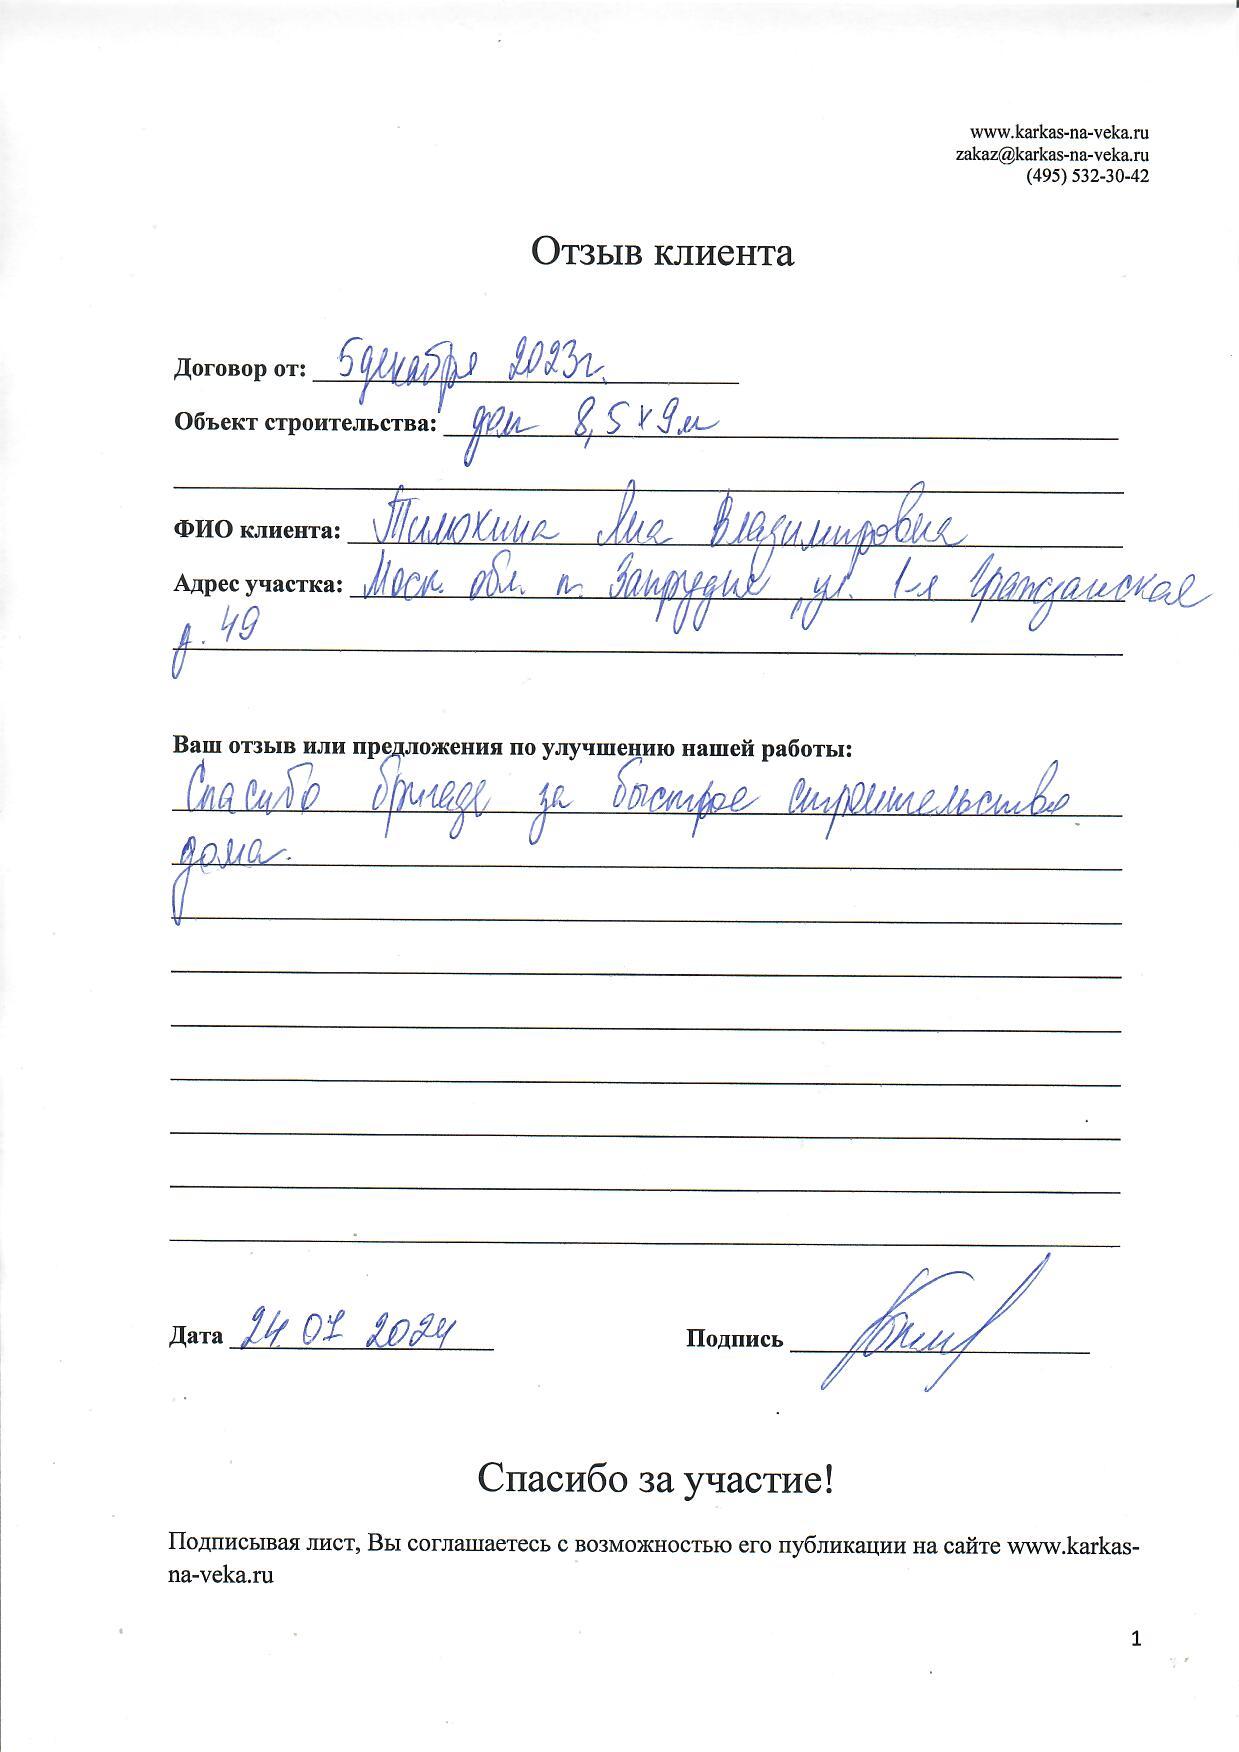 www.karkas-na-veka.ru
zakaz@karkas-na-veka.ru
(495) 532-30-42
Отзыв клиента
Договор от: 5 декабря 2023г.
Объект строительства: дом 8,5 х 9м
ФИО клиента: Тилюхина Яна Владимировна
Адрес участка: Моск. обл. п. Запрудня, ул. 1-я Гражданская
д. 49
Ваш отзыв или предложения по улучшению нашей работы:
Спасибо бригаде за быстрое строительство
дома.
Дата 24.07 2024 Подпись
Спасибо за участие!
Подписывая лист, Вы соглашаетесь с возможностью его публикации на сайте www.karkas-
na-veka.ru
1